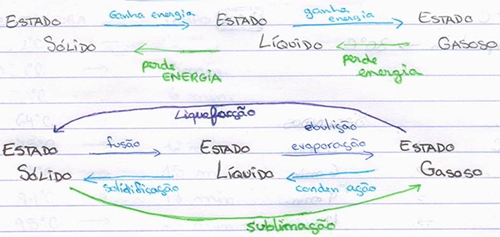 ESTADO Ganha energia ESTADO ganha energia ESTADO
SÓLIDO LÍQUIDO GASOSO
perde ENERGIA perde energia
Liquefacção
ESTADO fusão ESTADO ebulição evaporação ESTADO
SÓLIDO solidificação LÍQUIDO condensação GASOSO
sublimação